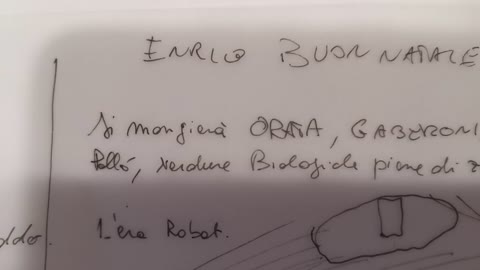 ENRICO BUON NATALE
Si mangierà ORATA, GABERONI
Pollo, verdure Biologiche piene di
L'era Robot.